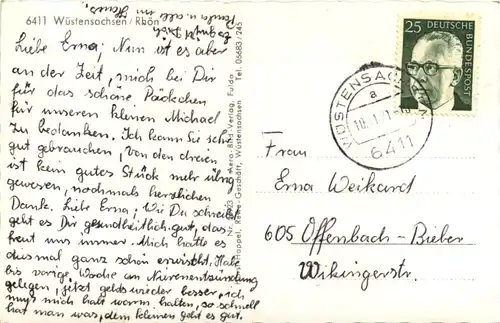 6411 Wüstensachsen / Rhön
Liebe Erna! Nun ist es aber
an der Zeit, mich bei Dir
für das schöne Päckchen
für unseren kleinen Michael
zu bedanken. Ich kann es sehr
gut gebrauchen, von den dreien
ist kein gutes Stück mehr übrig
gewesen, nochmals herzlichen
Dank. Liebe Erna, wie Du schreibst
geht es Dir gesundheitlich gut, das
freut uns immer. Mich hatte es
diesmal ganz schön erwischt. Habe
bis vorige Woche an Nierenentzündung
gelegen, jetzt gehts wieder besser, ich
muß mich halt warm halten, so schnell
hat man was, dem kleinen geht es gut.
Aero-Bild-Verlag, Fulda
Geschäft, Wüstensachsen Tel. 06683/245
25
DEUTSCHE BUNDESPOST
WÜSTENSACHSEN
a
6411
Frau
Erna Weikard
605 Offenbach-Bieber
Wikingerstr.